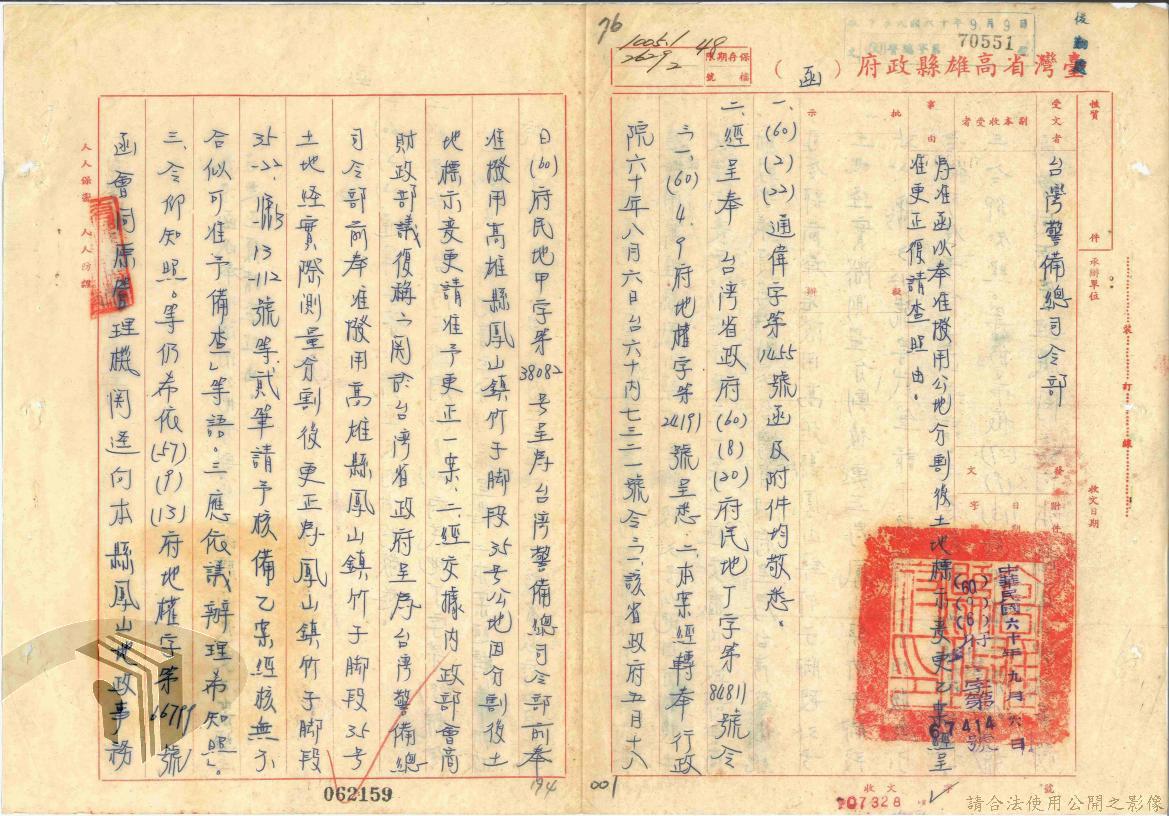 臺灣省高雄縣政府（函）
後勤處
六十年9月9日
70551
76
10051
26292
48
保存期限
檔號
性質
件
受文者
台灣警備總司令部
副本收受者
事由
為准函以奉准撥用公地分割後土地標示變更乙案經呈
准更正復請查照由。
批
示
擬
辦
承辦單位
收文日期
發文
附件
日期
字號
中華民國六十年九月六日
67414號
一、(60)(2)(22)通偉字第1455號函及附件均敬悉。
二、經呈奉　台灣省政府(60)(8)(20)府民地丁字第84811號令
「一、(60)4.9府地權字第24191號呈悉。二、本案經轉奉行政
院六十年八月六日台六十內七三二一號令「一、該省政府五月十八
日(60)府民地甲字第38082號呈為台灣警備總司令部前奉
准撥用高雄縣鳳山鎮竹子脚段35号公地因分割後土
地標示變更請准予更正一案。二、經交據內政部會商
財政部議復稱「關於台灣省政府呈為台灣警備總
司令部前奉准撥用高雄縣鳳山鎮竹子脚段35号
土地經實際測量分割後更正為鳳山鎮竹子脚段
號等貳筆請予核備乙案經核無不
合似可准予備查」等語。三、應依議辦理希知照」。
三、令仰知照。等仍希依(57)(9)(13)府地權字第66799號
函會同原管理機関逕向本縣鳳山地政事務
人人保密　人人防諜
裝
訂
線
收文
字
號
707328
001
194
062159
請合法使用公開之影像